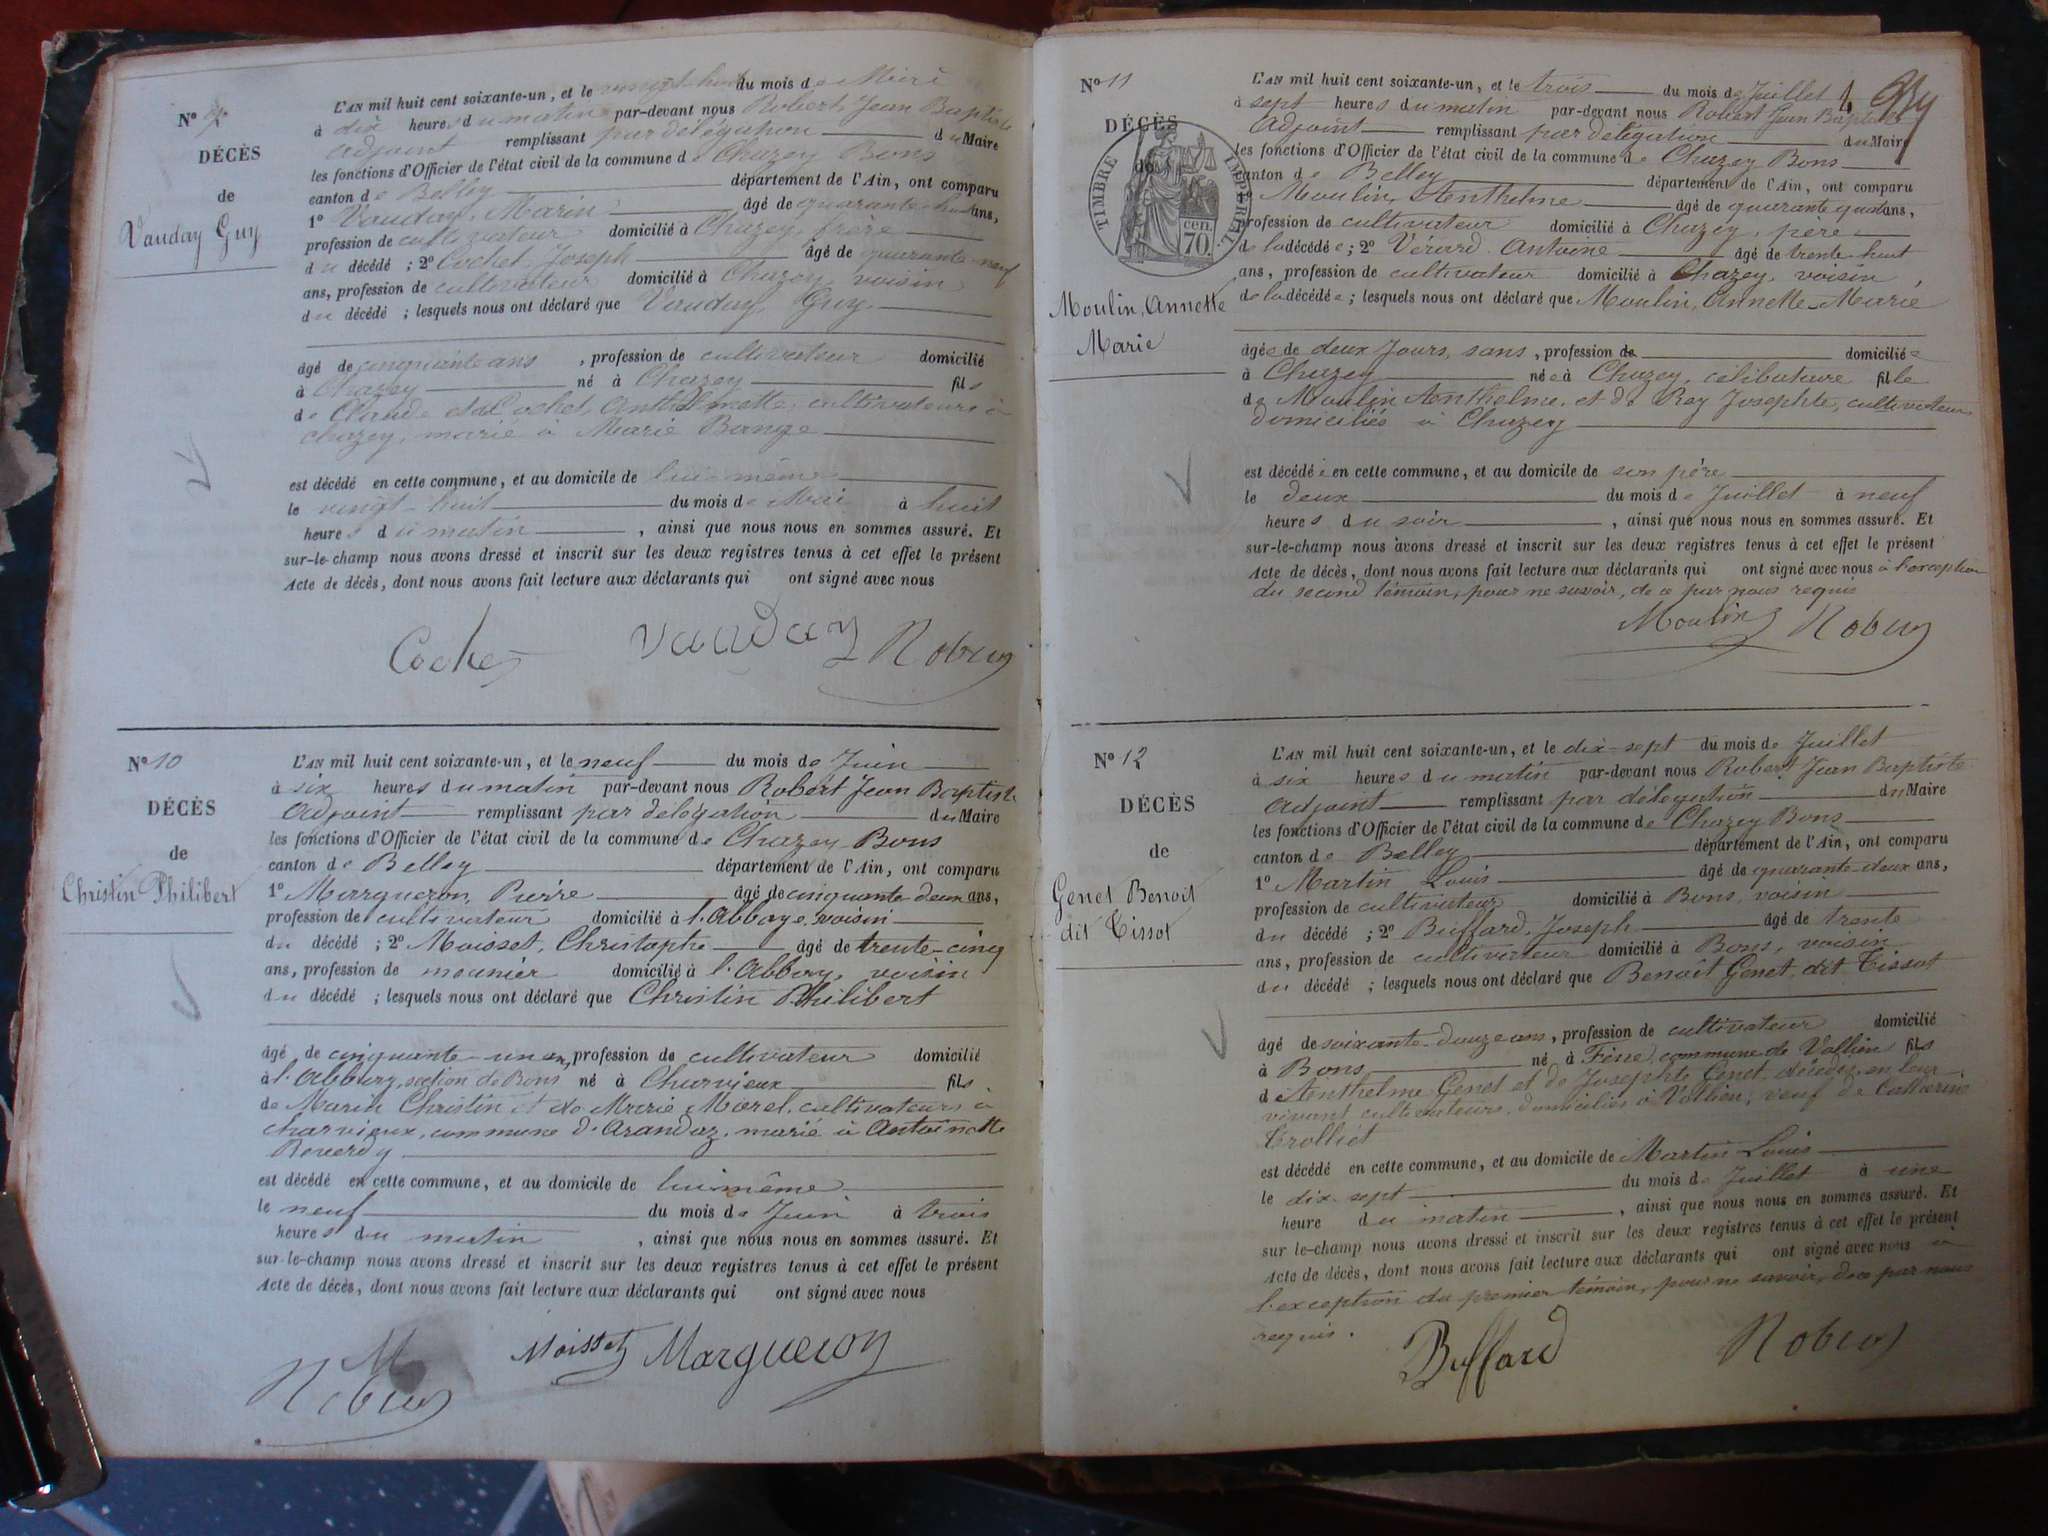 N° 9
DÉCÈS
de
Vauday Guy
L'AN mil huit cent soixante-un, et le vingt-huit du mois de Mai
à dix heures du matin par-devant nous Robert Jean Baptiste
adjoint remplissant par délégation du Maire
les fonctions d'Officier de l'état civil de la commune de Chazey Bons
canton de Belley département de l'Ain, ont comparu
1° Vauday, Marin âgé de quarante-huit ans,
profession de cultivateur domicilié à Chazey, frère
du décédé ; 2° Cochet, Joseph âgé de quarante-neuf
ans, profession de cultivateur domicilié à Chazey, voisin
du décédé ; lesquels nous ont déclaré que Vauday, Guy
âgé de cinquante ans , profession de cultivateur domicilié
à Chazey né à Chazey fils
de Claude et de Cochet, Anthelmette, cultivateurs à
chazey, marié à Marie Bange
est décédé en cette commune, et au domicile de lui-même
le vingt-huit du mois de Mai à huit
heures du matin , ainsi que nous nous en sommes assuré. Et
sur-le-champ nous avons dressé et inscrit sur les deux registres tenus à cet effet le présent
Acte de décès, dont nous avons fait lecture aux déclarants qui ont signé avec nous
Cochet Vauday Robert
N° 10
DÉCÈS
de
Christin Philibert
L'AN mil huit cent soixante-un, et le neuf du mois de Juin
à six heures du matin par-devant nous Robert Jean Baptiste
adjoint remplissant par délégation du Maire
les fonctions d'Officier de l'état civil de la commune de Chazey-Bons
canton de Belley département de l'Ain, ont comparu
1° Margueron, Pierre âgé de cinquante deux ans,
profession de cultivateur domicilié à l'Abbaye, voisin
du décédé ; 2° Moisset, Christophe âgé de trente-cinq
ans, profession de meunier domicilié à l'Abbay, voisin
du décédé ; lesquels nous ont déclaré que Christin Philibert
âgé de cinquante-un an, profession de cultivateur domicilié
à l'Abbay, section de Bons né à Charvieux fils
de Marin Christin et de Marie Morel, cultivateurs à
charvieux, commune d'Arandaz, marié à Antoinette
Reverdy
est décédé en cette commune, et au domicile de lui-même
le neuf du mois de Juin à trois
heures du matin , ainsi que nous nous en sommes assuré. Et
sur-le-champ nous avons dressé et inscrit sur les deux registres tenus à cet effet le présent
Acte de décès, dont nous avons fait lecture aux déclarants qui ont signé avec nous
M Moisset Margueron
Robert
N° 11
DÉCÈS
de
TIMBRE IMPÉRIAL
70. cen.
Moulin, Annette
Marie
L'AN mil huit cent soixante-un, et le trois du mois de Juillet
à sept heures du matin par-devant nous Robert Jean Baptiste
adjoint remplissant par délégation du Maire
les fonctions d'Officier de l'état civil de la commune de Chazey Bons
canton de Belley département de l'Ain, ont comparu
1° Moulin, Anthelme âgé de quarante quatre ans,
profession de cultivateur domicilié à Chazey, père
de la décédée ; 2° Vérard Antoine âgé de trente-huit
ans, profession de cultivateur domicilié à Chazey, voisin
de la décédée ; lesquels nous ont déclaré que Moulin, Annette-Marie
âgée de deux Jours, sans , profession de domiciliée
à Chazey née à Chazey, célibataire fille
de Moulin Anthelme, et de Rey Josephte, cultivateurs
domiciliés à Chazey
est décédée en cette commune, et au domicile de son père
le deux du mois de Juillet à neuf
heures du soir , ainsi que nous nous en sommes assuré. Et
sur-le-champ nous avons dressé et inscrit sur les deux registres tenus à cet effet le présent
Acte de décès, dont nous avons fait lecture aux déclarants qui ont signé avec nous à l'exception
du second témoin, pour ne savoir, de ce par nous requis
Moulin Robert
N° 12
DÉCÈS
de
Genet Benoit
dit Tissot
L'AN mil huit cent soixante-un, et le dix-sept du mois de Juillet
à six heures du matin par-devant nous Robert Jean Baptiste
adjoint remplissant par délégation du Maire
les fonctions d'Officier de l'état civil de la commune de Chazey Bons
canton de Belley département de l'Ain, ont comparu
1° Martin Louis âgé de quarante-deux ans,
profession de cultivateur domicilié à Bons, voisin
du décédé ; 2° Buffard, Joseph âgé de trente
ans, profession de cultivateur domicilié à Bons, voisin
du décédé ; lesquels nous ont déclaré que Benoit Genet, dit Tissot
âgé de soixante-douze ans, profession de cultivateur domicilié
à Bons né à commune de Vollien fils
d'Anthelme Genet et de Josephte Genet, décédés, en leur
vivant cultivateurs, domiciliés à Vollien, veuf de Catherine
Trolliet
est décédé en cette commune, et au domicile de Martin Louis
le dix-sept du mois de Juillet à une
heure du matin , ainsi que nous nous en sommes assuré. Et
sur le-champ nous avons dressé et inscrit sur les deux registres tenus à cet effet le présent
Acte de décès, dont nous avons fait lecture aux déclarants qui ont signé avec nous à
l'exception du premier témoin, pour ne savoir, de ce par nous
requis.
Buffard Robert